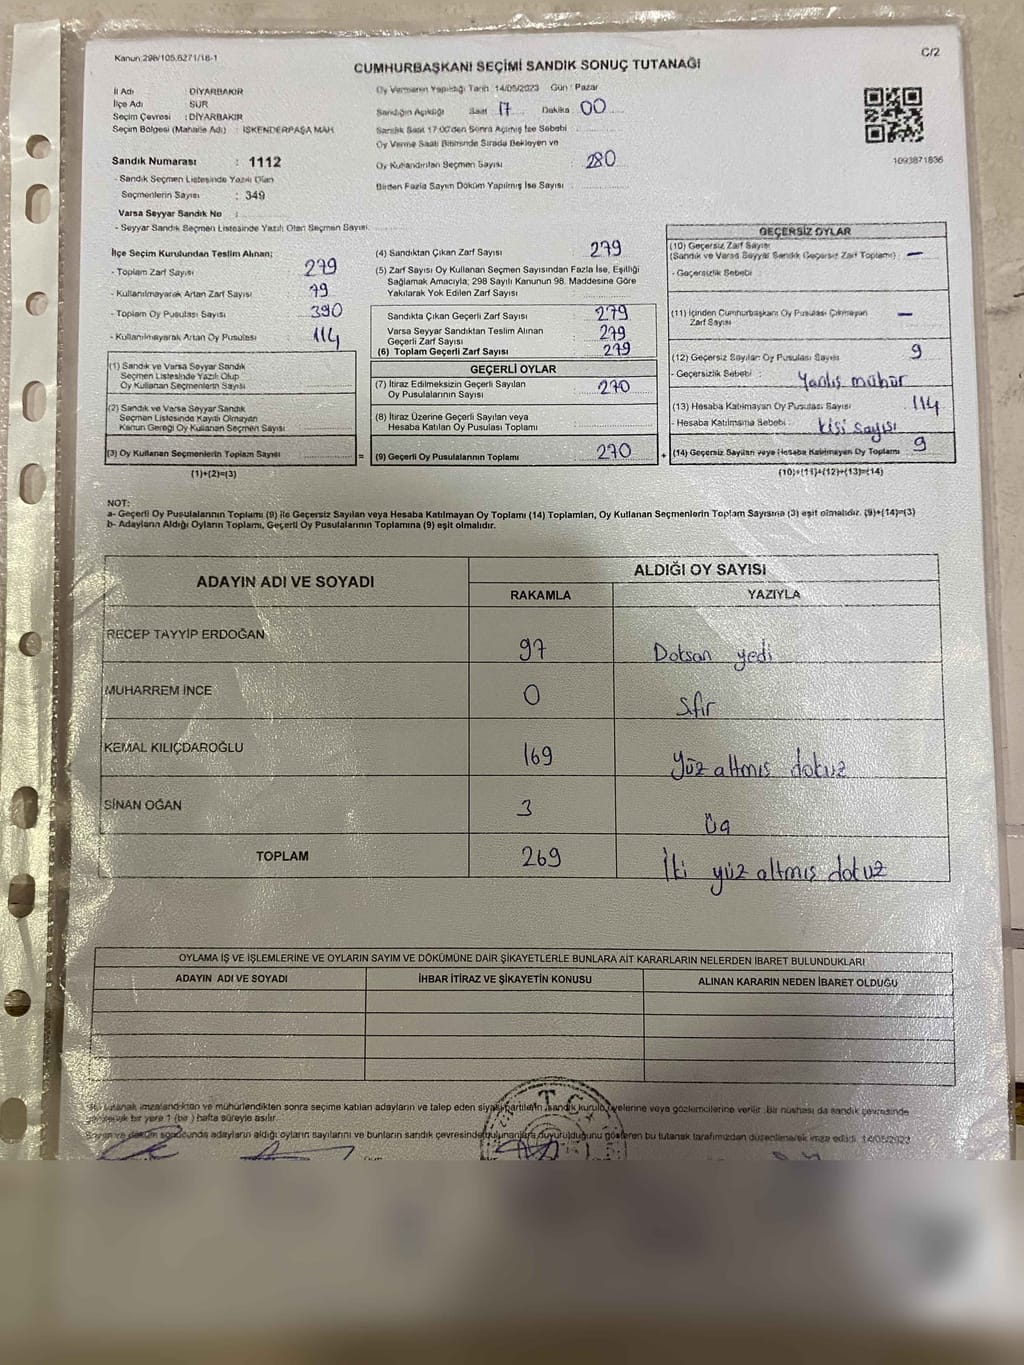 Kanun 298/105,6271/18-1
C/2
CUMHURBAŞKANI SEÇİMİ SANDIK SONUÇ TUTANAĞI
İl Adı : DİYARBAKIR
İlçe Adı : SUR
Seçim Çevresi : DİYARBAKIR
Seçim Bölgesi (Mahalle Adı) : İSKENDERPAŞA MAH
Oy Vermenin Yapıldığı Tarih 14/05/2023 Gün : Pazar
Sandığın Açıldığı Saat 17 Dakika 00
Sandık Saat 17:00'den Sonra Açılmış İse Sebebi
Oy Verme Saati Bitiminde Sırada Bekleyen ve
Oy Kullandırılan Seçmen Sayısı : 280
Birden Fazla Sayım Döküm Yapılmış İse Sayısı :
1093871836
Sandık Numarası : 1112
- Sandık Seçmen Listesinde Yazılı Olan
Seçmenlerin Sayısı : 349
Varsa Seyyar Sandık No :
- Seyyar Sandık Seçmen Listesinde Yazılı Olan Seçmen Sayısı
İlçe Seçim Kurulundan Teslim Alınan;
- Toplam Zarf Sayısı : 279
- Kullanılmayarak Artan Zarf Sayısı : 79
- Toplam Oy Pusulası Sayısı : 390
- Kullanılmayarak Artan Oy Pusulası : 114
(1) Sandık ve Varsa Seyyar Sandık
Seçmen Listesinde Yazılı Olup
Oy Kullanan Seçmenlerin Sayısı
(2) Sandık ve Varsa Seyyar Sandık
Seçmen Listesinde Kayıtlı Olmayan
Kanun Gereği Oy Kullanan Seçmen Sayısı
(3) Oy Kullanan Seçmenlerin Toplam Sayısı
(1)+(2)=(3)
(4) Sandıktan Çıkan Zarf Sayısı : 279
(5) Zarf Sayısı Oy Kullanan Seçmen Sayısından Fazla İse, Eşitliği
Sağlamak Amacıyla, 298 Sayılı Kanunun 98. Maddesine Göre
Yakılarak Yok Edilen Zarf Sayısı
Sandıkta Çıkan Geçerli Zarf Sayısı 279
Varsa Seyyar Sandıktan Teslim Alınan
Geçerli Zarf Sayısı 279
(6) Toplam Geçerli Zarf Sayısı 279
GEÇERLİ OYLAR
(7) İtiraz Edilmeksizin Geçerli Sayılan
Oy Pusulalarının Sayısı 270
(8) İtiraz Üzerine Geçerli Sayılan veya
Hesaba Katılan Oy Pusulası Toplamı
(9) Geçerli Oy Pusulalarının Toplamı 270
GEÇERSİZ OYLAR
(10) Geçersiz Zarf Sayısı
(Sandık ve Varsa Seyyar Sandık Geçersiz Zarf Toplamı) : —
- Geçersizlik Sebebi :
(11) İçinden Cumhurbaşkanı Oy Pusulası Çıkmayan
Zarf Sayısı —
(12) Geçersiz Sayılan Oy Pusulası Sayısı 9
- Geçersizlik Sebebi : Yanlış mühür
(13) Hesaba Katılmayan Oy Pusulası Sayısı 114
- Hesaba Katılmama Sebebi : kişi sayısı
(14) Geçersiz Sayılan veya Hesaba Katılmayan Oy Toplamı 9
(10)+(11)+(12)+(13)=(14)
NOT:
a- Geçerli Oy Pusulalarının Toplamı (9) ile Geçersiz Sayılan veya Hesaba Katılmayan Oy Toplamı (14) Toplamları, Oy Kullanan Seçmenlerin Toplam Sayısına (3) eşit olmalıdır. (9)+(14)=(3)
b- Adayların Aldığı Oyların Toplamı, Geçerli Oy Pusulalarının Toplamına (9) eşit olmalıdır.
ADAYIN ADI VE SOYADI
ALDIĞI OY SAYISI
RAKAMLA YAZIYLA
RECEP TAYYİP ERDOĞAN 97 Doksan yedi
MUHARREM İNCE 0 Sıfır
KEMAL KILIÇDAROĞLU 169 Yüz altmış dokuz
SİNAN OĞAN 3 Üç
TOPLAM 269 İki yüz altmış dokuz
OYLAMA İŞ VE İŞLEMLERİNE VE OYLARIN SAYIM VE DÖKÜMÜNE DAİR ŞİKAYETLERLE BUNLARA AİT KARARLARIN NELERDEN İBARET BULUNDUKLARI
ADAYIN ADI VE SOYADI İHBAR İTİRAZ VE ŞİKAYETİN KONUSU ALINAN KARARIN NEDEN İBARET OLDUĞU
Bu tutanak imzalandıktan ve mühürlendikten sonra seçime katılan adayların ve talep eden siyasi partilerin, sandık kurulu üyelerine veya gözlemcilerine verilir. Bir nüshası da sandık çevresinde
bir yere 1 (bir) hafta süreyle asılır.
Sayım ve döküm sonucunda adayların aldığı oyların sayılarını ve bunların sandık çevresinde bulunanlara duyurulduğunu gösteren bu tutanak tarafımızdan düzenlenerek imza edildi. 14/05/2023
T.C.